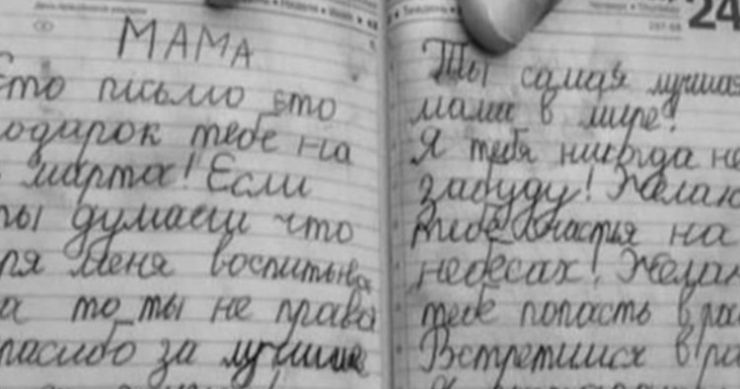 МАМА
Это письмо это
одарок тебе на
марта! Если
ты думаеш что
ря меня воспитыва
а то ты не права
пасибо за лучшие
24
Ты самая лучшая
мама в мире!
Я тебя никогда не
забуду! Желаю
тебе счастья на
небесах! Желаю
тебе попасть в ра
Встретимся в ра